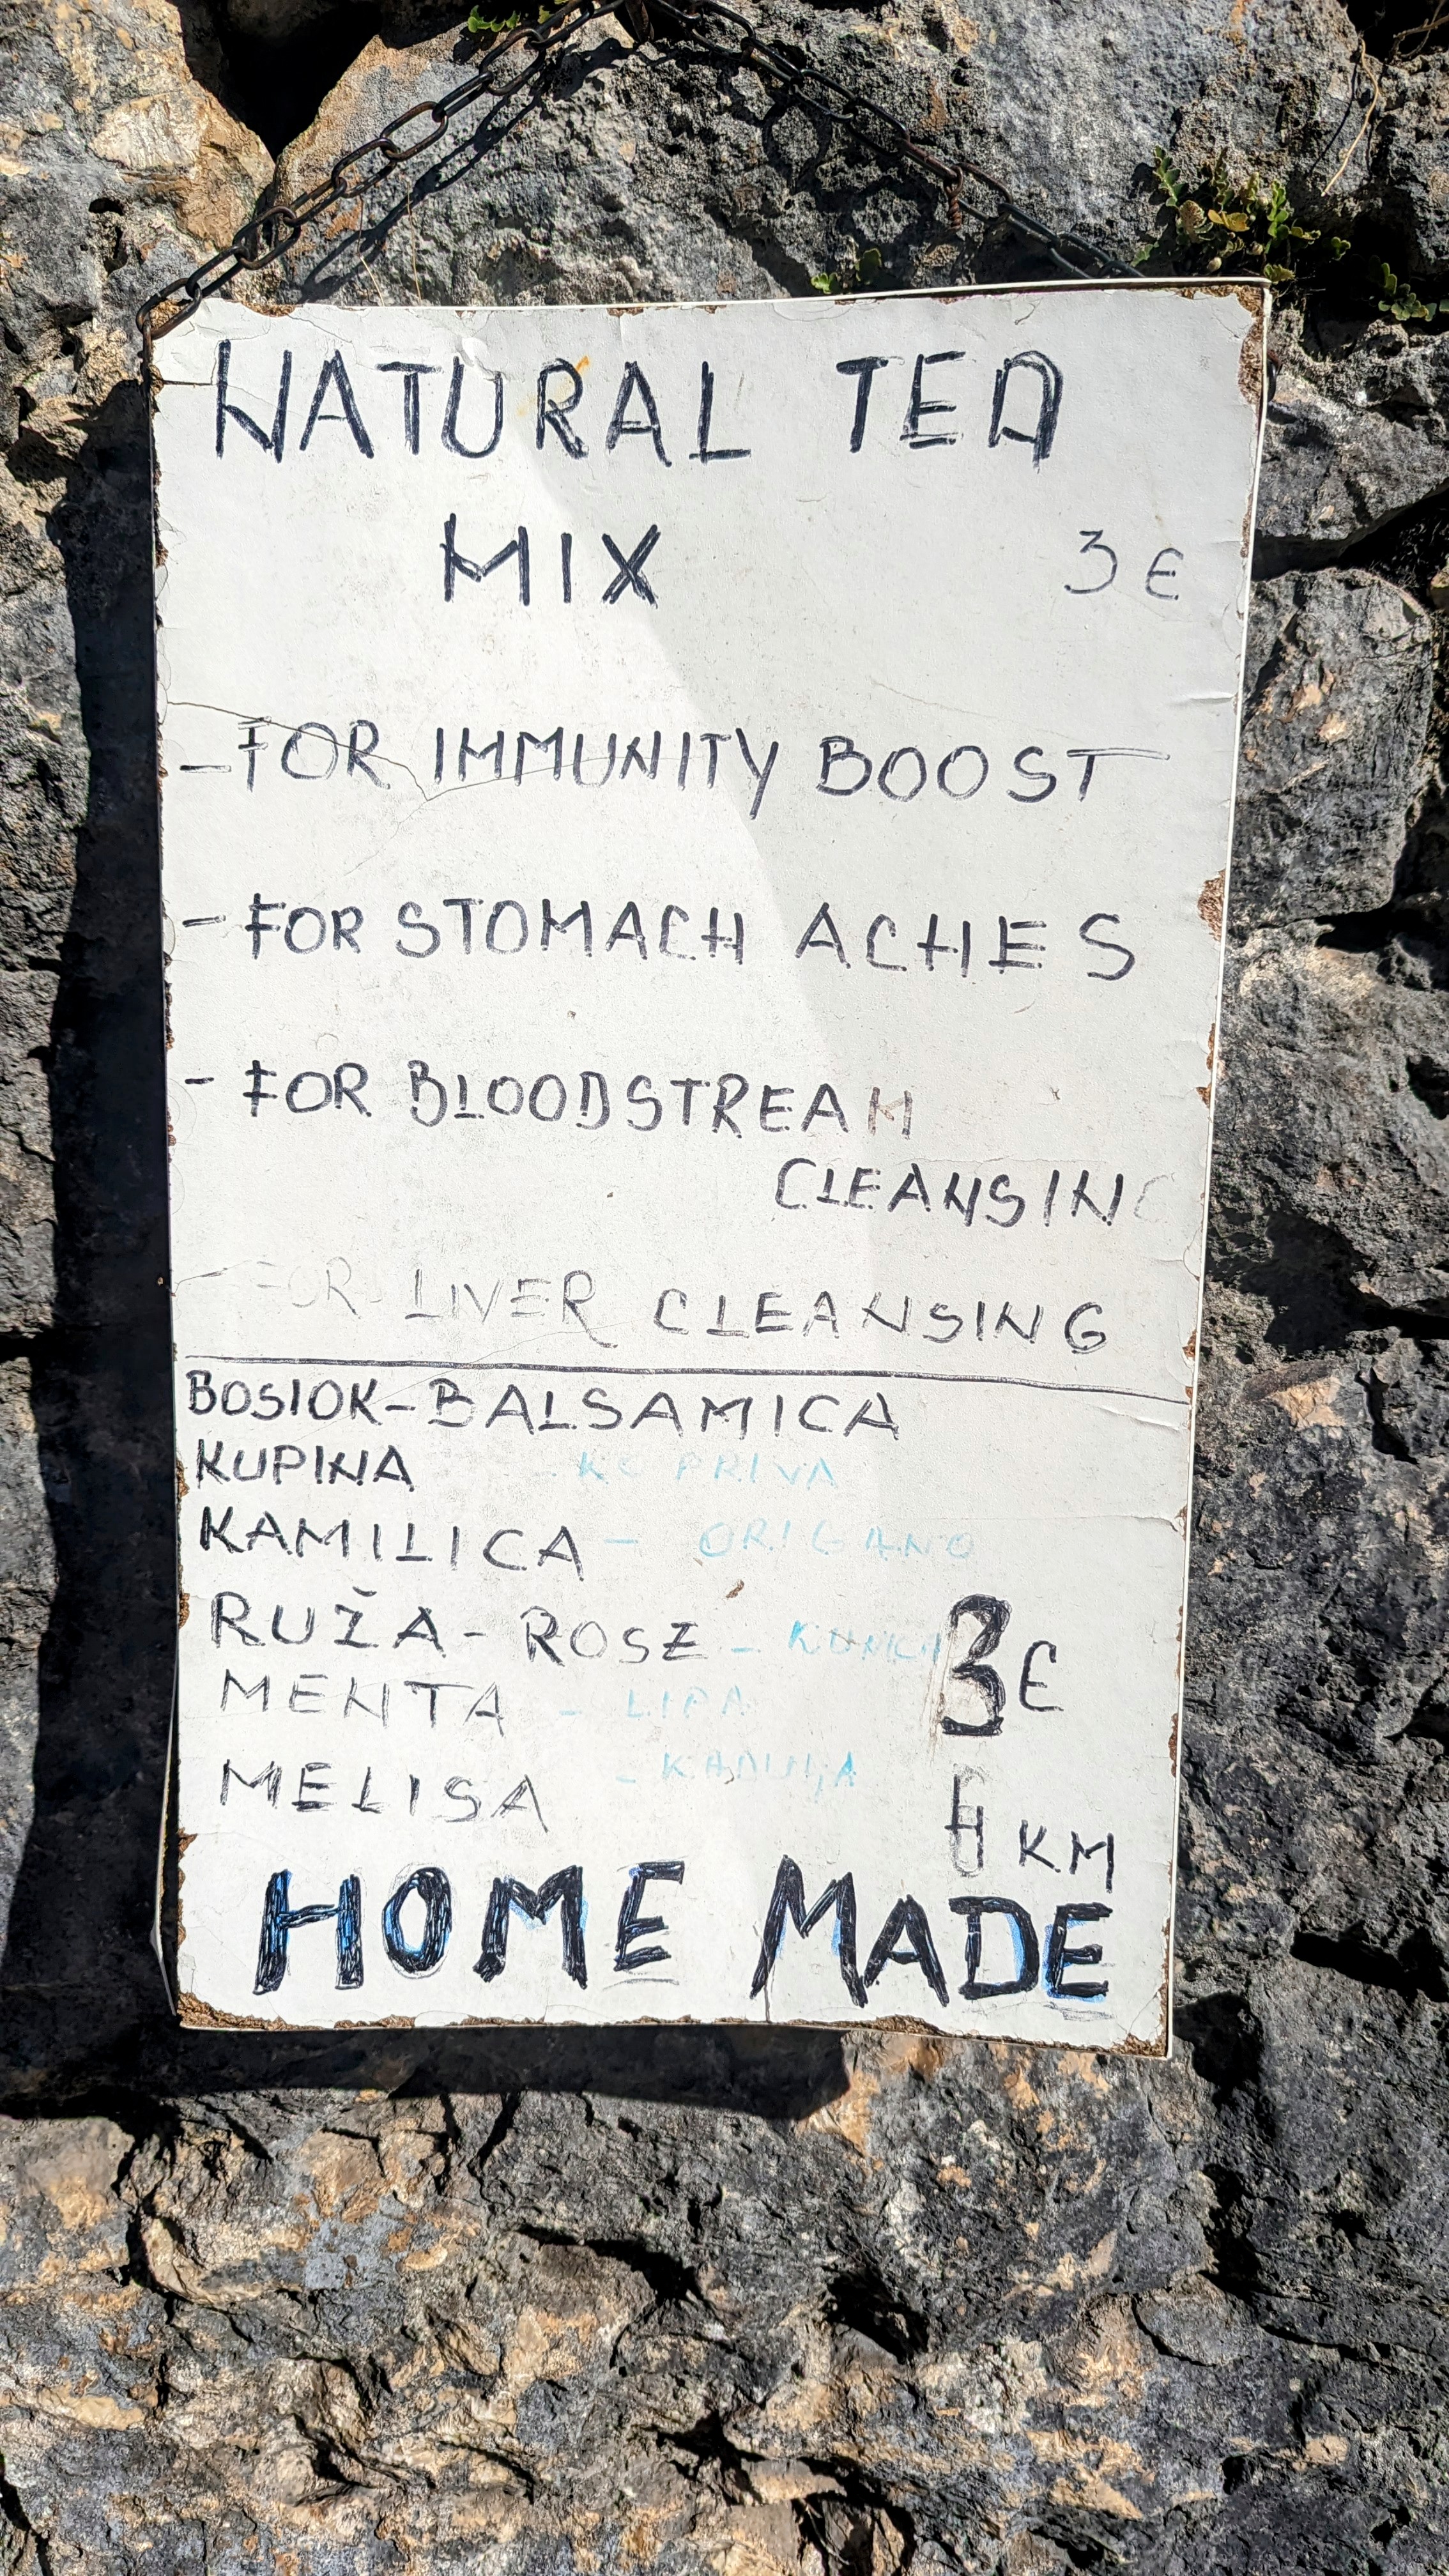 NATURAL TEA
MIX 3 €
- FOR IMMUNITY BOOST
- FOR STOMACH ACHES
- FOR BLOODSTREAM
CLEANSING
- FOR LIVER CLEANSING
BOSIOK-BALSAMICA
KUPINA - KOPRIVA
KAMILICA - ORIGANO
RUŽA - ROSE -
3 €
MENTA - LIPA
MELISA - KADULJA
6 KM
HOME MADE